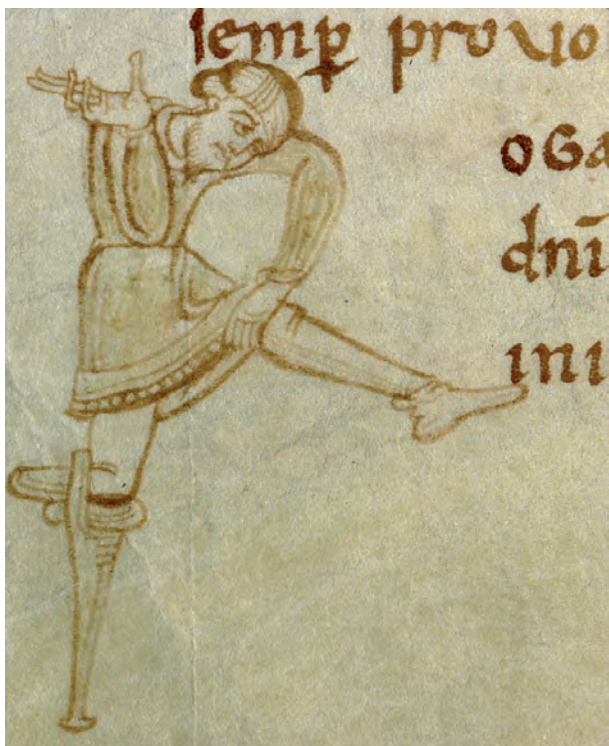 semp̲ provo
oGa
dn̄i
ini